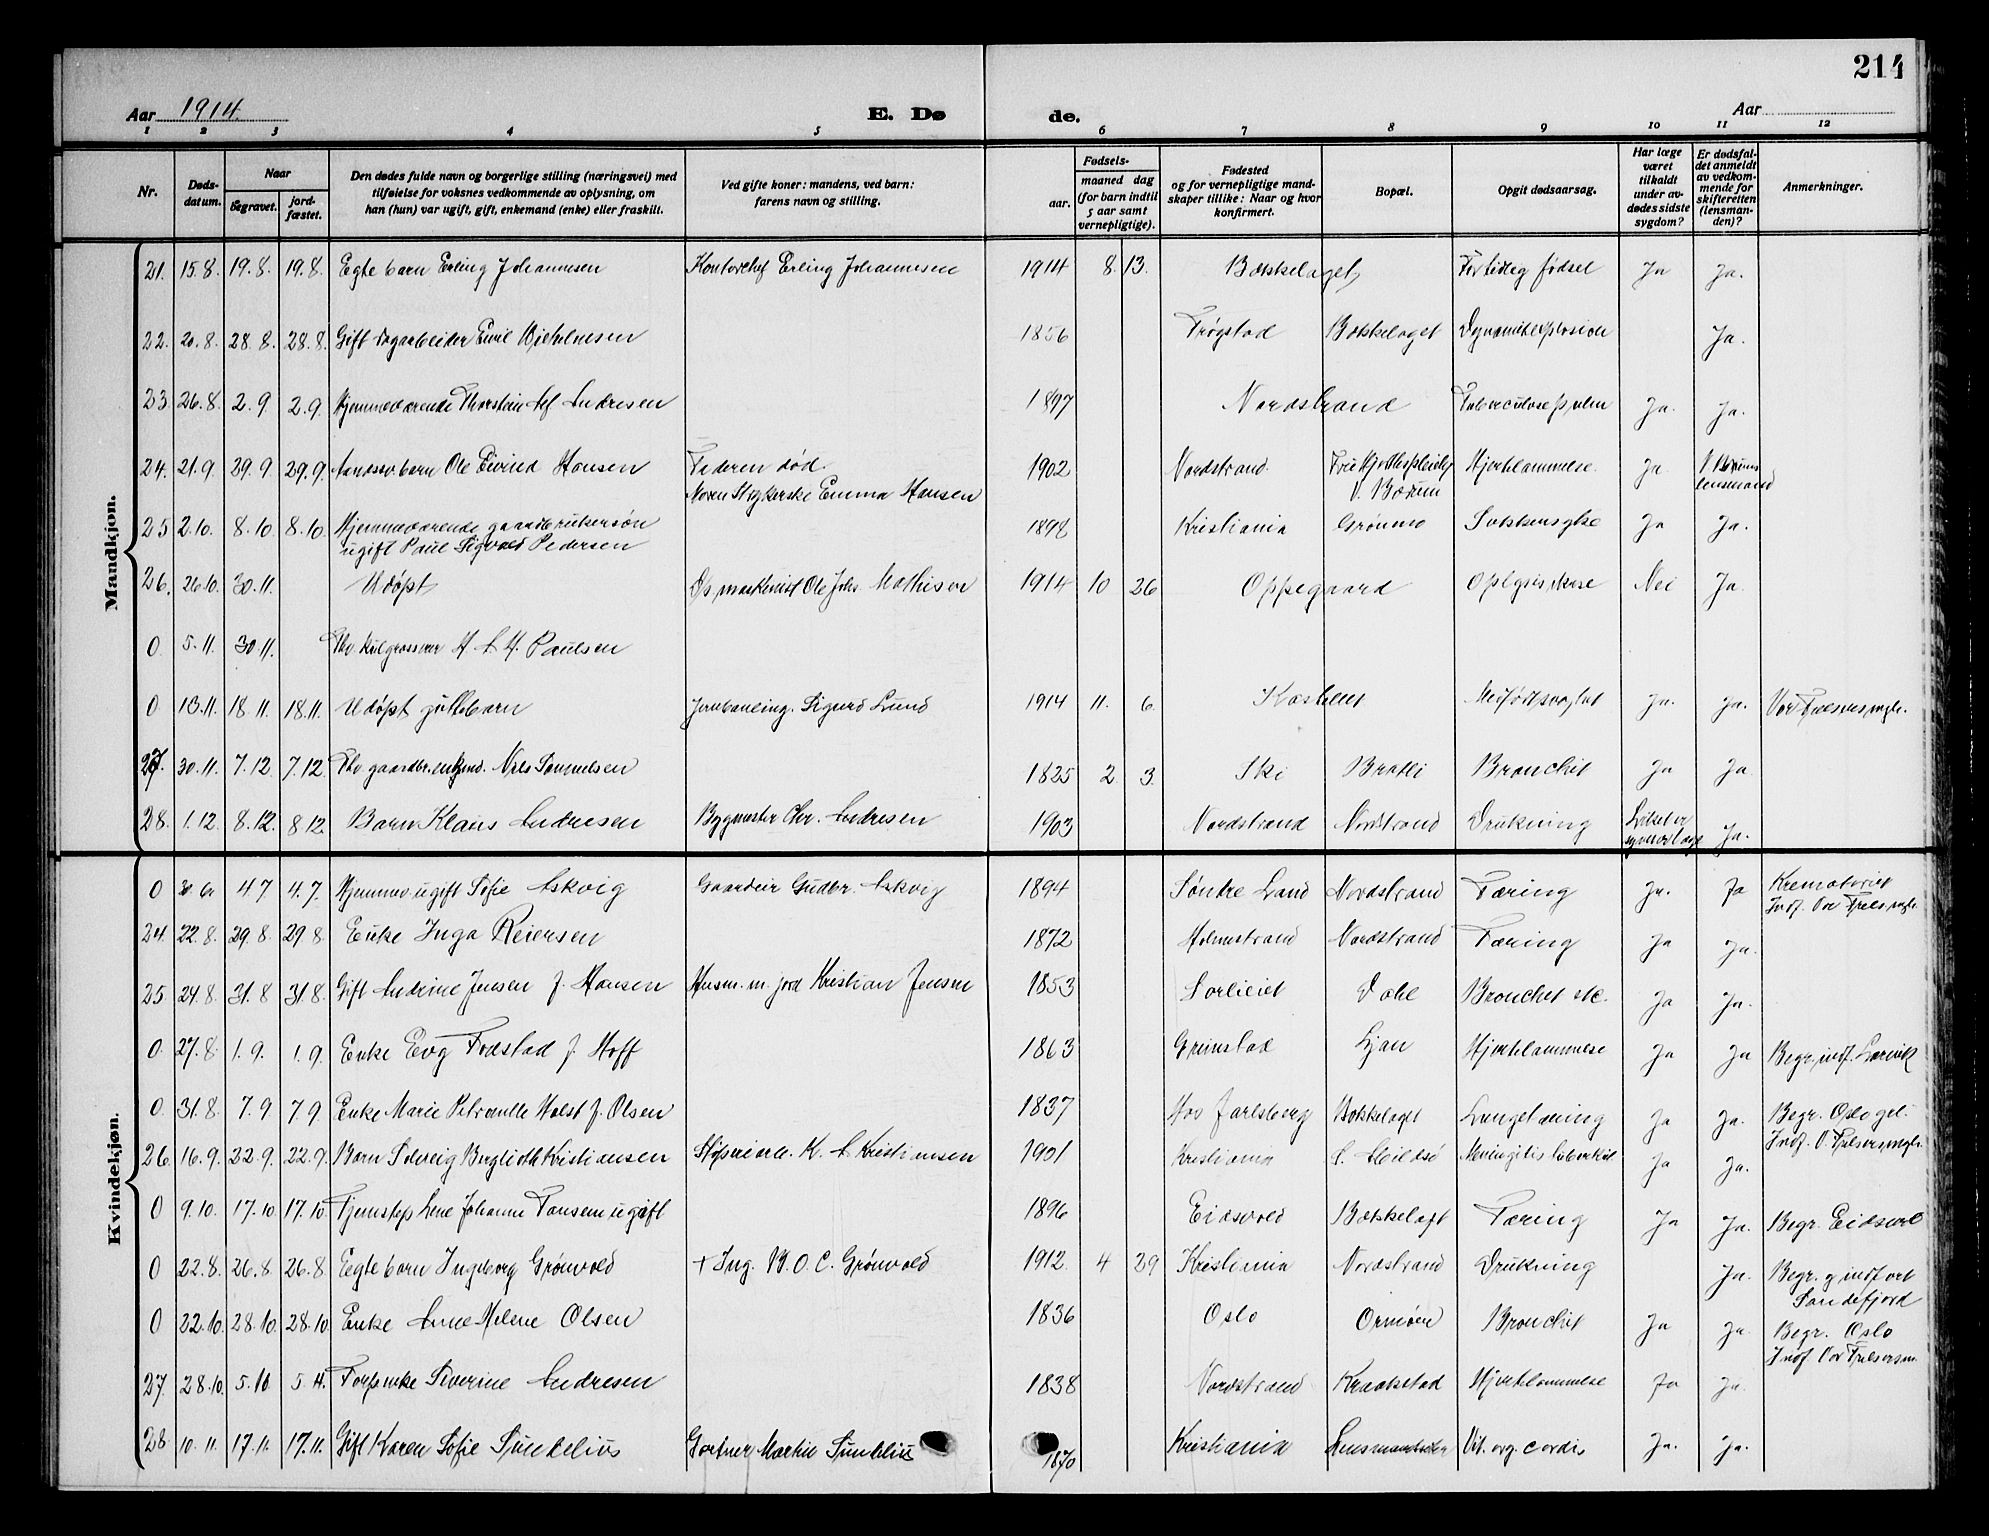 214
Aar 1914.
E. Dø
de.
Aar
1 2 3 4 5 6 7 8 9 10 11 12
Nr.
Døds-
datum.
Naar
begravet.
jord-
fæstet.
Den dødes fulde navn og borgerlige stilling (næringsvei) med
tilføielse for voksnes vedkommende av oplysning, om
han (hun) var ugift, gift, enkemand (enke) eller fraskilt.
Ved gifte koner: mandens, ved barn:
farens navn og stilling.
Fødsels-
aar.
maaned dag
(for barn indtil
5 aar samt
vernepligtige).
Fødested
og for vernepligtige mand-
skaper tillike: Naar og hvor
konfirmert.
Bopæl.
Opgit dødsaarsag.
Har læge
været
tilkaldt
under av-
dødes sidste
sygdom?
Er dødsfal-
det anmeldt
av vedkom-
mende for
skifteretten
(lensman-
den)?
Anmerkninger.
Mandkjøn.
21. 15.8. 19.8. 19.8. Egte barn Erling Johannesen Kontorchef Erling Johannesen 1914 8. 13. Bækkelaget For tidlig fødsel Ja Ja.
22. 20.8. 28.8. 28.8. Gift dagarbeider Emil 1856 Trøgstad Bækkelaget Dynamiteksplosion Ja.
23 26.8. 2.9. 2.9. Hjemmeværende Thorstein Andresen 1897 Nordstrand Ja. Ja.
24. 21.9. 29.9. 29.9. barn Ole Eivind Hansen Faderen død. 1902 Nordstrand. Hjertelammelse. Ja
Moren Strykerske Emma Hansen V. Bærum lensmand
25 2.10. 8.10 8.10. Hjemmeværende gaardbrukersøn Kristiania Grønmo Sukkersyke Ja Ja.
ugift Paul Sigvald Pedersen
26. 26.10. 30.11. Udøpt Ole Johs. Mathisen 1914 10 26 Oppegaard Nei Ja.
0. 5.11. 30.11. Fhv. kulgrosserer H. A. H. Paulsen
0 13.11. 18.11. 18.11. Udøpt guttebarn Jernbaneing. Sigurd Lund 1914 11. 6. Kastellet Ja. Ja. Vor Frelsers mgh.
27. 30.11. 7.12. 7.12. Fhv gaardbr. enkemd. Nils Samuelsen 1825 2. 3. Ski Bratli Bronchit Ja Ja
28. 1.12. 8.12. 8.12. Barn Klaus Andresen Bygmester Chr. Andresen 1903 Nordstrand Nordstrand Drukning Liket er Ja.
Kvindekjøn.
0 30.6. 4.7 4.7. Hjemmev. ugift Sofie Askvig Gaardeier Gudbr. Askvig 1894 Søndre Land Nordstrand Tæring Ja. Ja Krematoriet
Indf. Vor Frels. mgh.
24. 22.8. 29.8. 29.8 Enke Inga Reiersen 1872 Holmestrand Nordstrand Tæring Ja Ja.
25. 24.8. 31.8 31.8. Gift Andrine Jensen f. Hansen Husm. m. jord Kristian Jensen 1853 Dahl Bronchit etc. Ja Ja.
0. 27.8. 1.9. 1.9. Enke Fodstad f. Hoff 1863 Grimstad Ljan Hjertelammelse Ja Ja Begr., indf. Larvik
0. 31.8. 7.9 7.9 Enke Marie Petronelle Holst f. Olsen 1837 Jarlsberg Bækkelaget Lungetæring Ja Ja. Begr. Oslo
Indf. V. Frelsers mgh.
26. 16.9. 22.9. 22.9. Barn Solveig Kristiansen K. A. Kristiansen 1901 Kristiania Ja Ja.
0 9.10. 17.10 17.10. Johanne ugift 1896 Eidsvold Bækkelaget Tæring Ja Ja. Begr. Eidsvold
0 22.8. 26.8 26.8 Egte barn Ingeborg Grønvold + Ing. B. O. C. Grønvold 1912. 4 29 Kristiania Nordstrand Drukning Ja. Begr. og indført
Sandefjord
0 22.10. 28.10. 28.10. Enke Anne Helene Olsen 1836 Oslo Ormøen Bronchit Ja Ja. Begr. Oslo
Indf Vor Frelsersm.
27. 28.10. 5.11 5.11. Severine Andresen 1838 Nordstrand Kraakstad Hjertelammelse Ja Ja.
28. 10.11. 17.11. 17.11. Gift Karen Sofie Sundelius Gartner Martin Sundelius 1870 Kristiania Vit. org. cordis Ja. Ja.